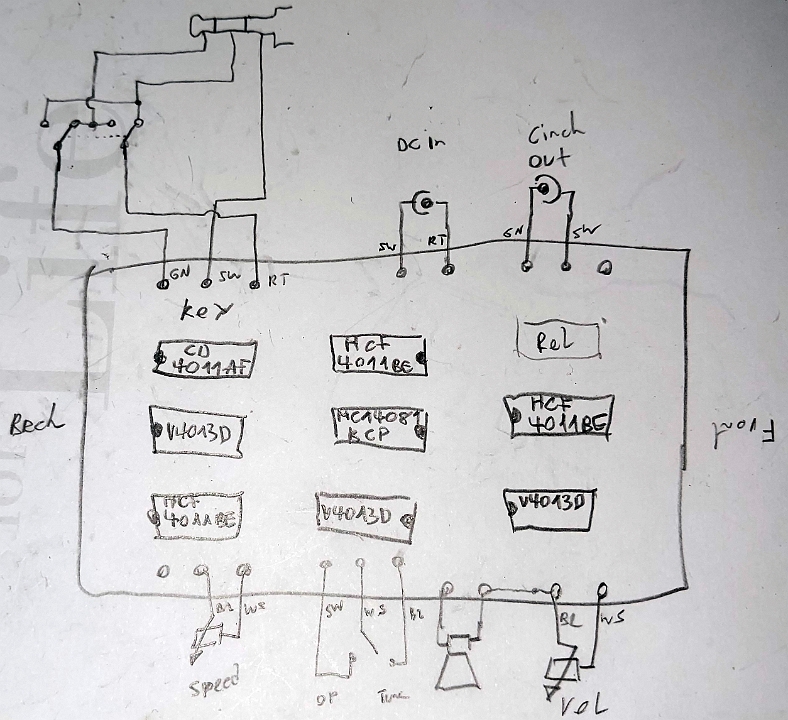 DC in
Cinch
out
SW
RT
GN
SW
GN
SW
RT
Key
CD
4011AF
HCF
4011BE
Rel
V4013D
MC14081
BCP
HCF
4011BE
HCF
4011BE
V4013D
V4013D
BL
WS
SW
WS
BL
BL
WS
Speed
DP
Tune
VOL